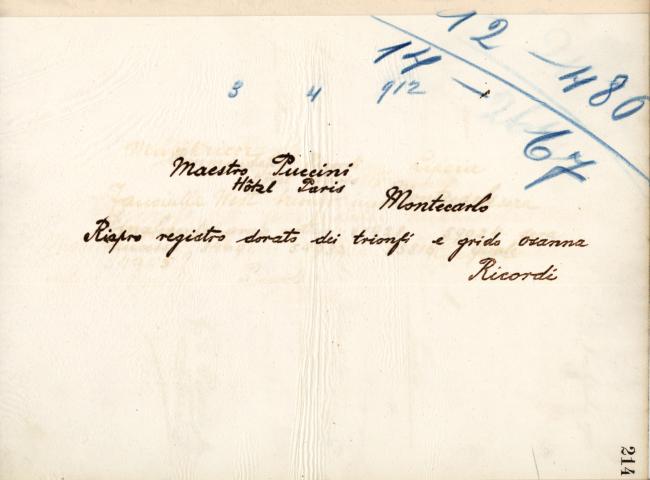 12 - 480
14 - 67
3 4 912
Maestro Puccini
Hôtel Paris
Montecarlo
Riapro registro dorato dei trionfi e grido osanna
Ricordi
214